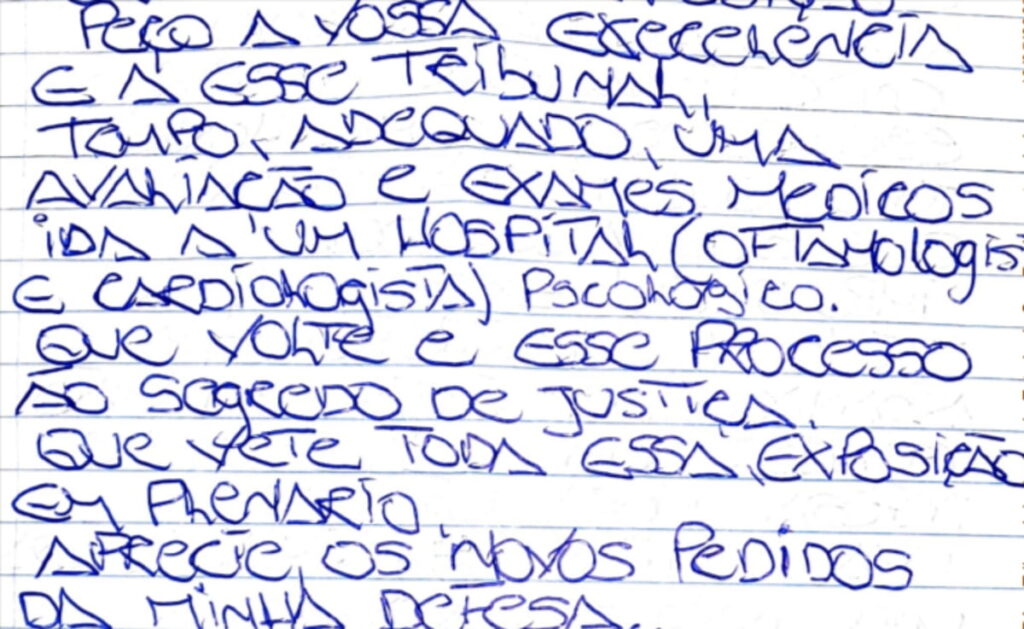 PEÇO A VOSSA EXECELENCIA
E A ESSE TRIBUNAL,
TEMPO, ADEQUADO, UMA
AVALIAÇÃO E EXAMES MEDICOS
IDA A UM HOSPITAL (OFTAMOLOGIS
E CARDIOLOGISTA) PSCOLOGICO.
QUE VOLTE E ESSE PROCESSO
AO SEGREDO DE JUSTIÇA.
QUE VETE TODA ESSA, EXPOSIÇÃO
EM PLENARIO.
APRECIE, OS NOVOS PEDIDOS
DA MINHA DEFESA.